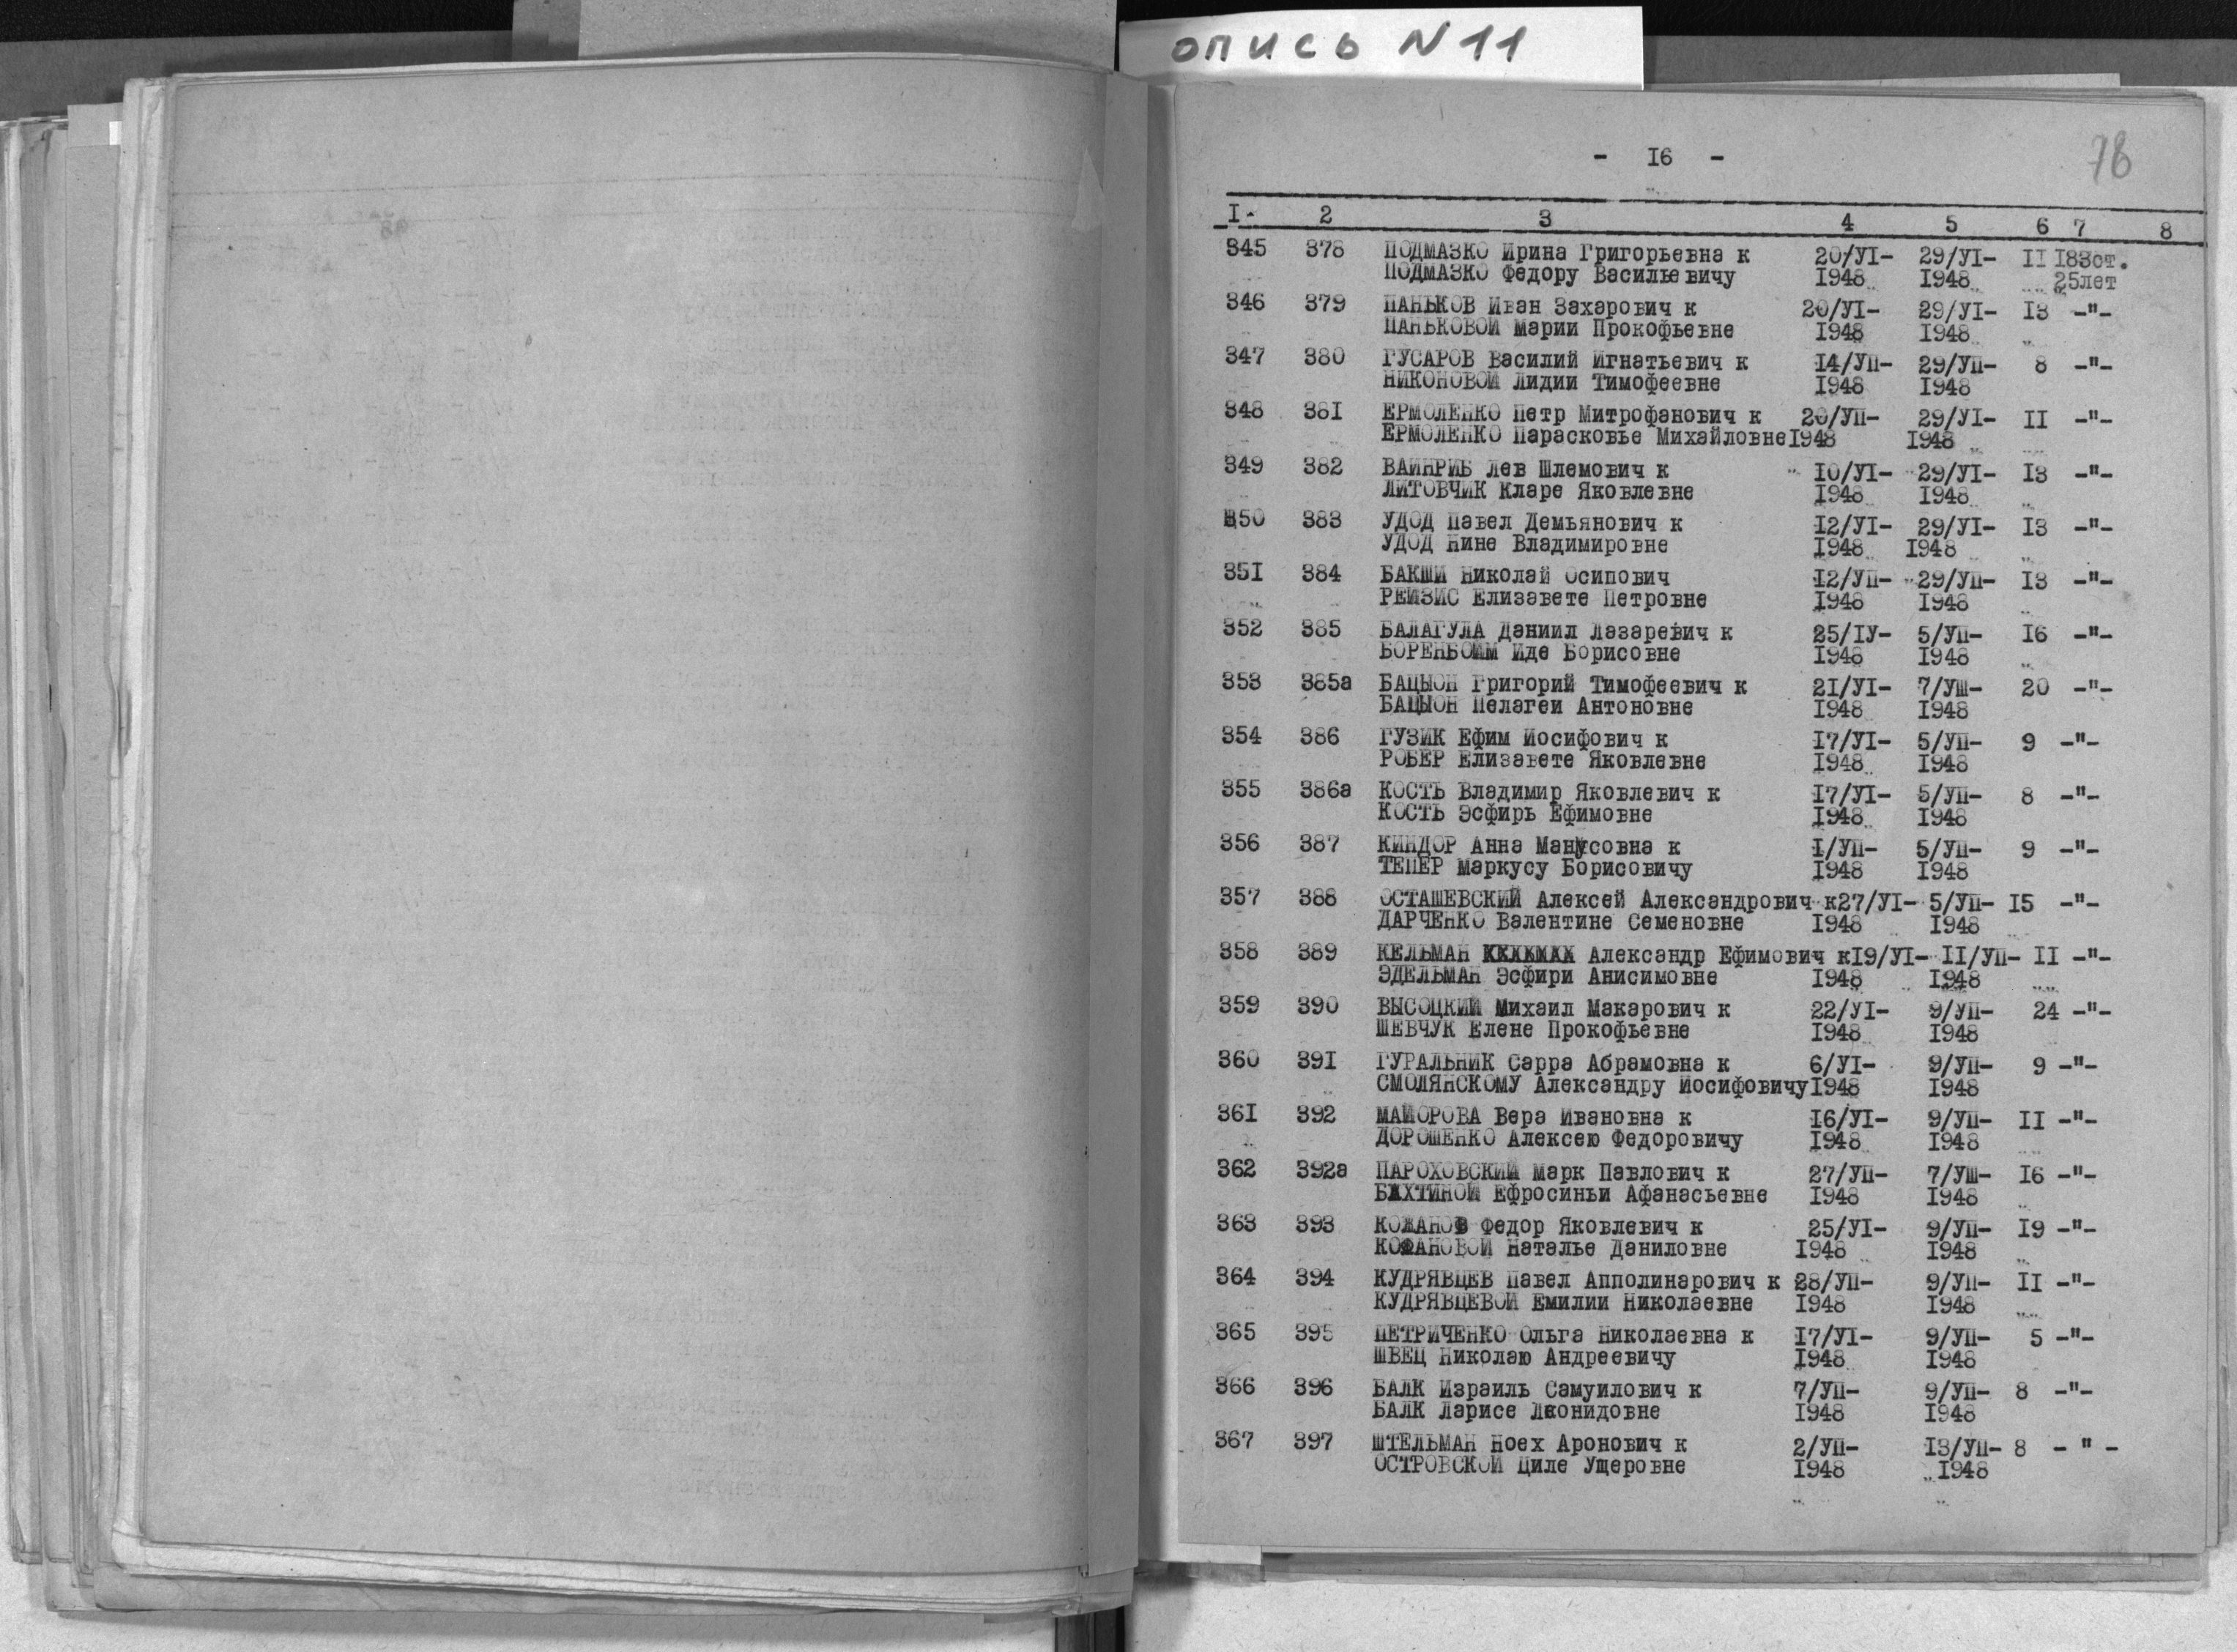 опись N 11
78
- I6 -
I. 2 3 4 5 6 7 8
345 378 ПОДМАЗКО Ирина Григорьевна к 20/УI- 29/УI- II 183ст.
ПОДМАЗКО Федору Васильевичу 1948 1948 25лет
346 379 ПАНЬКОВ Иван Захарович к 20/УI- 29/УI- I3 -"-
ПАНЬКОВОЙ Марии Прокофьевне I948 I948
347 380 ГУСАРОВ Василий Игнатьевич к I4/УП- 29/УП- 8 -"-
НИКОНОВОЙ Лидии Тимофеевне I948 I948
348 38I ЕРМОЛЕНКО Петр Митрофанович к 20/УП- 29/УI- II -"-
ЕРМОЛЕНКО Парасковье МихайловнеI948 I948
349 382 ВАЙНРИБ Лев Шлемович к I0/УI- 29/УI- I3 -"-
ЛИТОВЧИК Кларе Яковлевне I948 I948
350 383 УДОД Павел Демьянович к I2/УI- 29/УI- I3 -"-
УДОД Нине Владимировне I948 I948
35I 384 БАКШИ Николай Осипович I2/УП- 29/УП- I3 -"-
РЕЙЗИС Елизавете Петровне I948 I948
352 385 БАЛАГУЛА Даниил Лазаревич к 25/IУ- 5/УП- I6 -"-
БОРЕНБОЙМ Иде Борисовне I948 I948
353 385а БАЦЫОН Григорий Тимофеевич к 2I/УI- 7/УШ- 20 -"-
БАЦЫОН Пелагеи Антоновне I948 I948
354 386 ГУЗИК Ефим Иосифович к I7/УI- 5/УП- 9 -"-
РОБЕР Елизавете Яковлевне I948 I948
355 386а КОСТЬ Владимир Яковлевич к I7/УI- 5/УП- 8 -"-
КОСТЬ Эсфирь Ефимовне I948 I948
356 387 КИНДОР Анна Манусовна к I/УП- 5/УП- 9 -"-
ТЕПЕР Маркусу Борисовичу I948 I948
357 388 ОСТАШЕВСКИЙ Алексей Александрович к27/УI- 5/УП- I5 -"-
ДАРЧЕНКО Валентине Семеновне I948 I948
358 389 КЕЛЬМАН Александр Ефимович кI9/УI- II/УП- II -"-
ЭДЕЛЬМАН Эсфири Анисимовне I948 I948
359 390 ВЫСОЦКИЙ Михаил Макарович к 22/УI- 9/УП- 24 -"-
ШЕВЧУК Елене Прокофьевне I948 I948
360 39I ГУРАЛЬНИК Сарра Абрамовна к 6/УI- 9/УП- 9 -"-
СМОЛЯНСКОМУ Александру ИосифовичуI948 I948
36I 392 МАЙОРОВА Вера Ивановна к I6/УI- 9/УП- II -"-
ДОРОШЕНКО Алексею Федоровичу I948 I948
362 392а ПАРОХОВСКИЙ Марк Павлович к 27/УП- 7/УШ- I6 -"-
БАХТИНОЙ Ефросиньи Афанасьевне I948 I948
363 393 КОЖАНОВ Федор Яковлевич к 25/УI- 9/УП- I9 -"-
КОЖАНОВОЙ Наталье Даниловне I948 I948
364 394 КУДРЯВЦЕВ Павел Апполинарович к 28/УП- 9/УП- II -"-
КУДРЯВЦЕВОЙ Емилии Николаевне I948 I948
365 395 ПЕТРИЧЕНКО Ольга Николаевна к I7/УI- 9/УП- 5 -"-
ШВЕЦ Николаю Андреевичу I948 I948
366 396 БАЛК Израиль Самуилович к 7/УП- 9/УП- 8 -"-
БАЛК Ларисе Леонидовне I948 I948
367 397 ШТЕЛЬМАН Ноех Аронович к 2/УП- I3/УП- 8 - " -
ОСТРОВСКОЙ Циле Ущеровне I948 I948